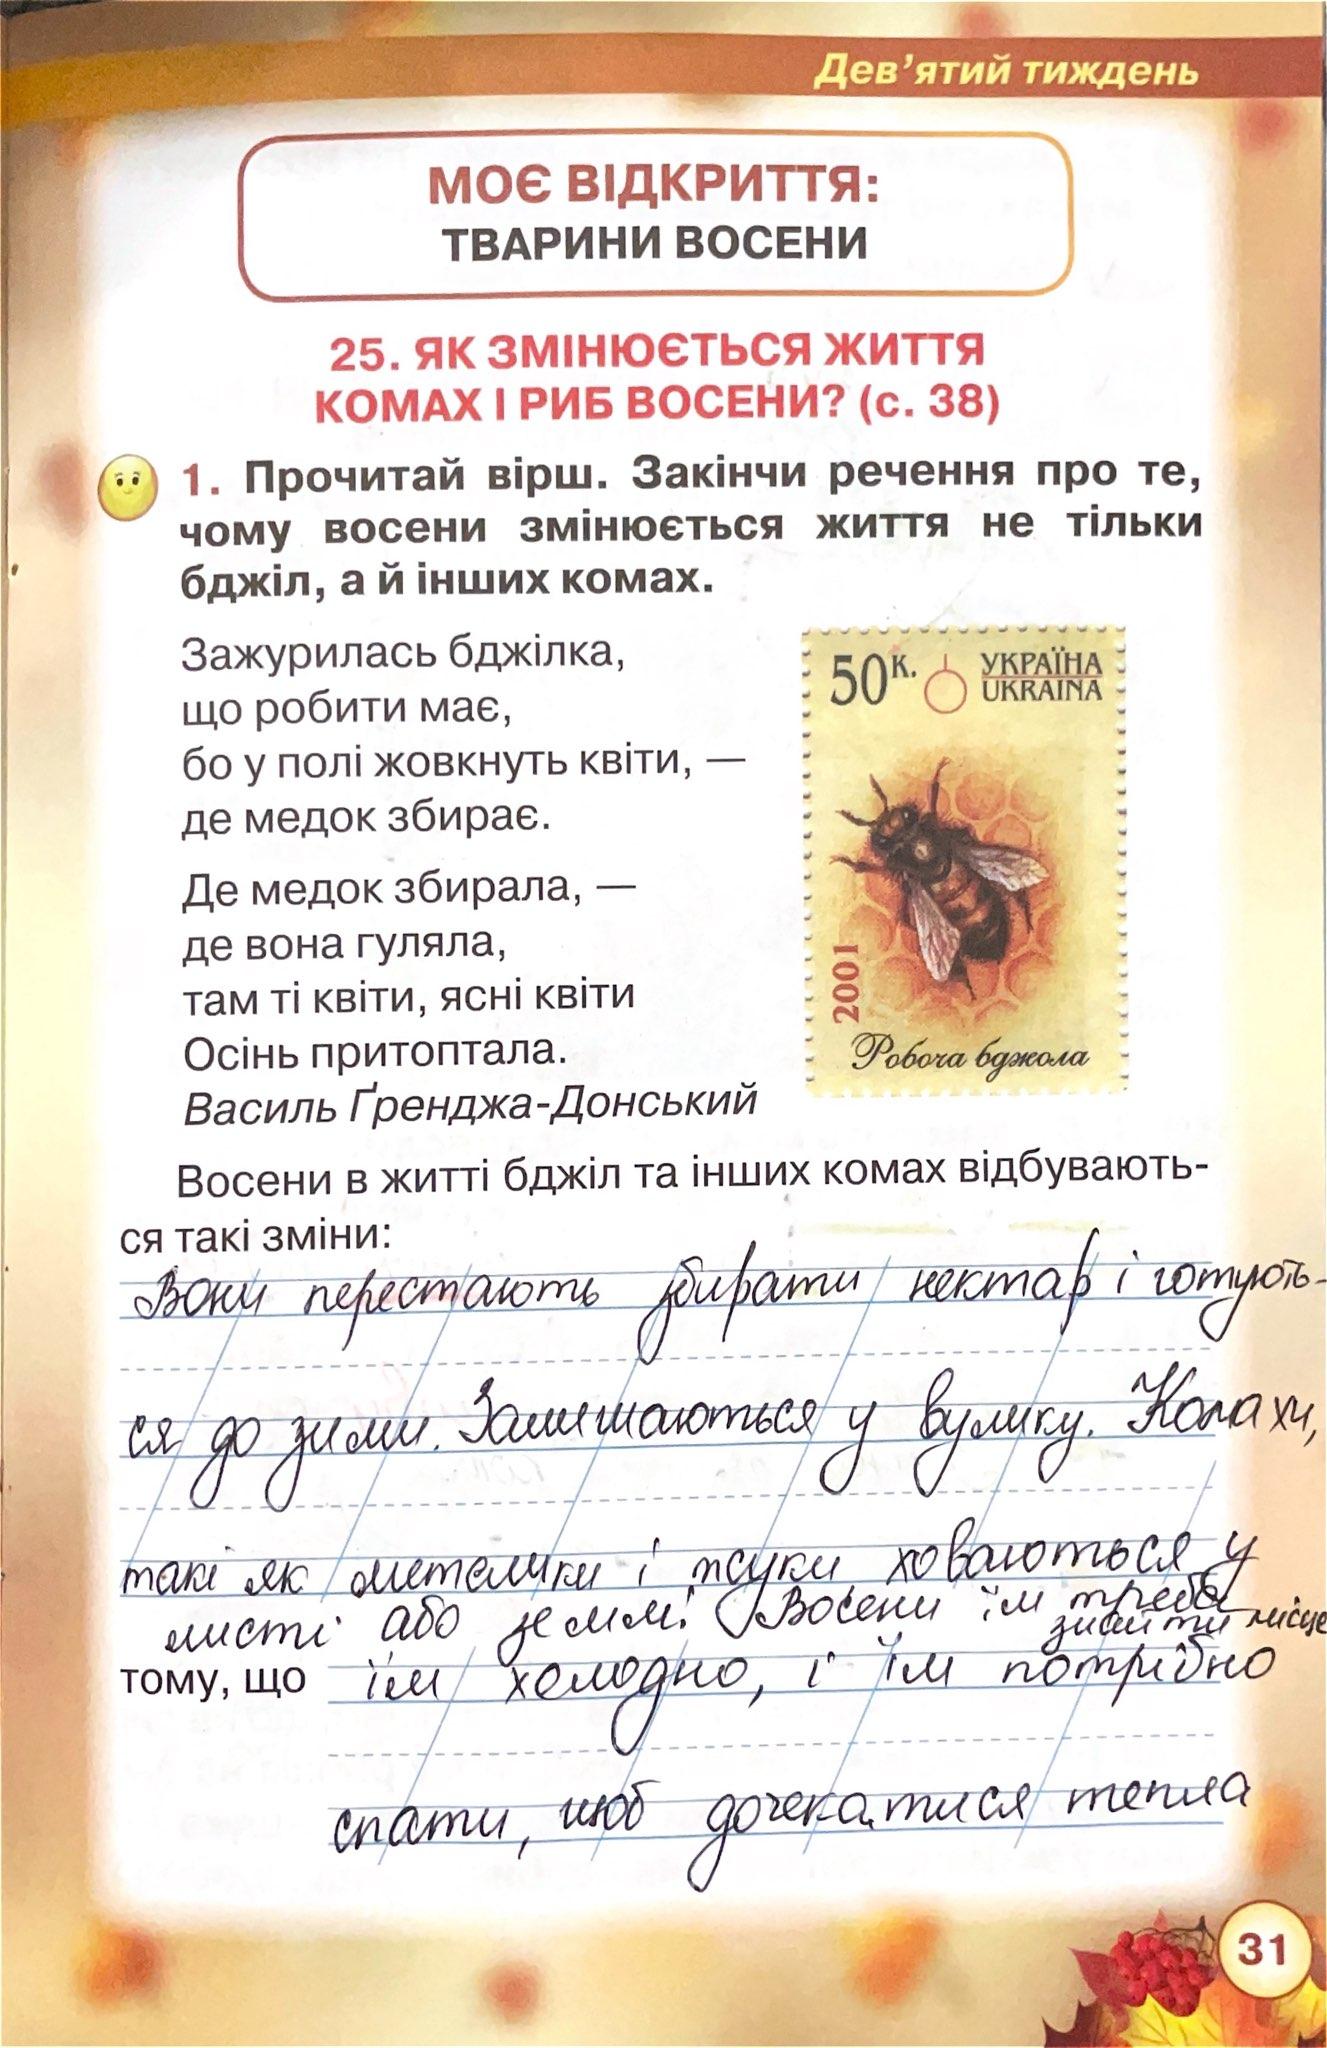 Дев'ятий тиждень
МОЄ ВІДКРИТТЯ:
ТВАРИНИ ВОСЕНИ
25. ЯК ЗМІНЮЄТЬСЯ ЖИТТЯ
КОМАХ І РИБ ВОСЕНИ? (с. 38)
1. Прочитай вірш. Закінчи речення про те,
чому восени змінюється життя не тільки
бджіл, а й інших комах.
Зажурилась бджілка,
що робити має,
бо у полі жовкнуть квіти, —
де медок збирає.
Де медок збирала, —
де вона гуляла,
там ті квіти, ясні квіти
Осінь притоптала.
Василь Ґренджа-Донський
50к. УКРАЇНА
UKRAINA
2001
Робоча бджола
Восени в житті бджіл та інших комах відбувають-
ся такі зміни:
Вони перестають збирати нектар і готують-
ся до зими. Залишаються у вулику. Комахи,
такі як метелики і жуки ховаються у
листі або землі. Восени їм треба
знайти місце
тому, що їм холодно, і їм потрібно
спати, щоб дочекатися тепла
31